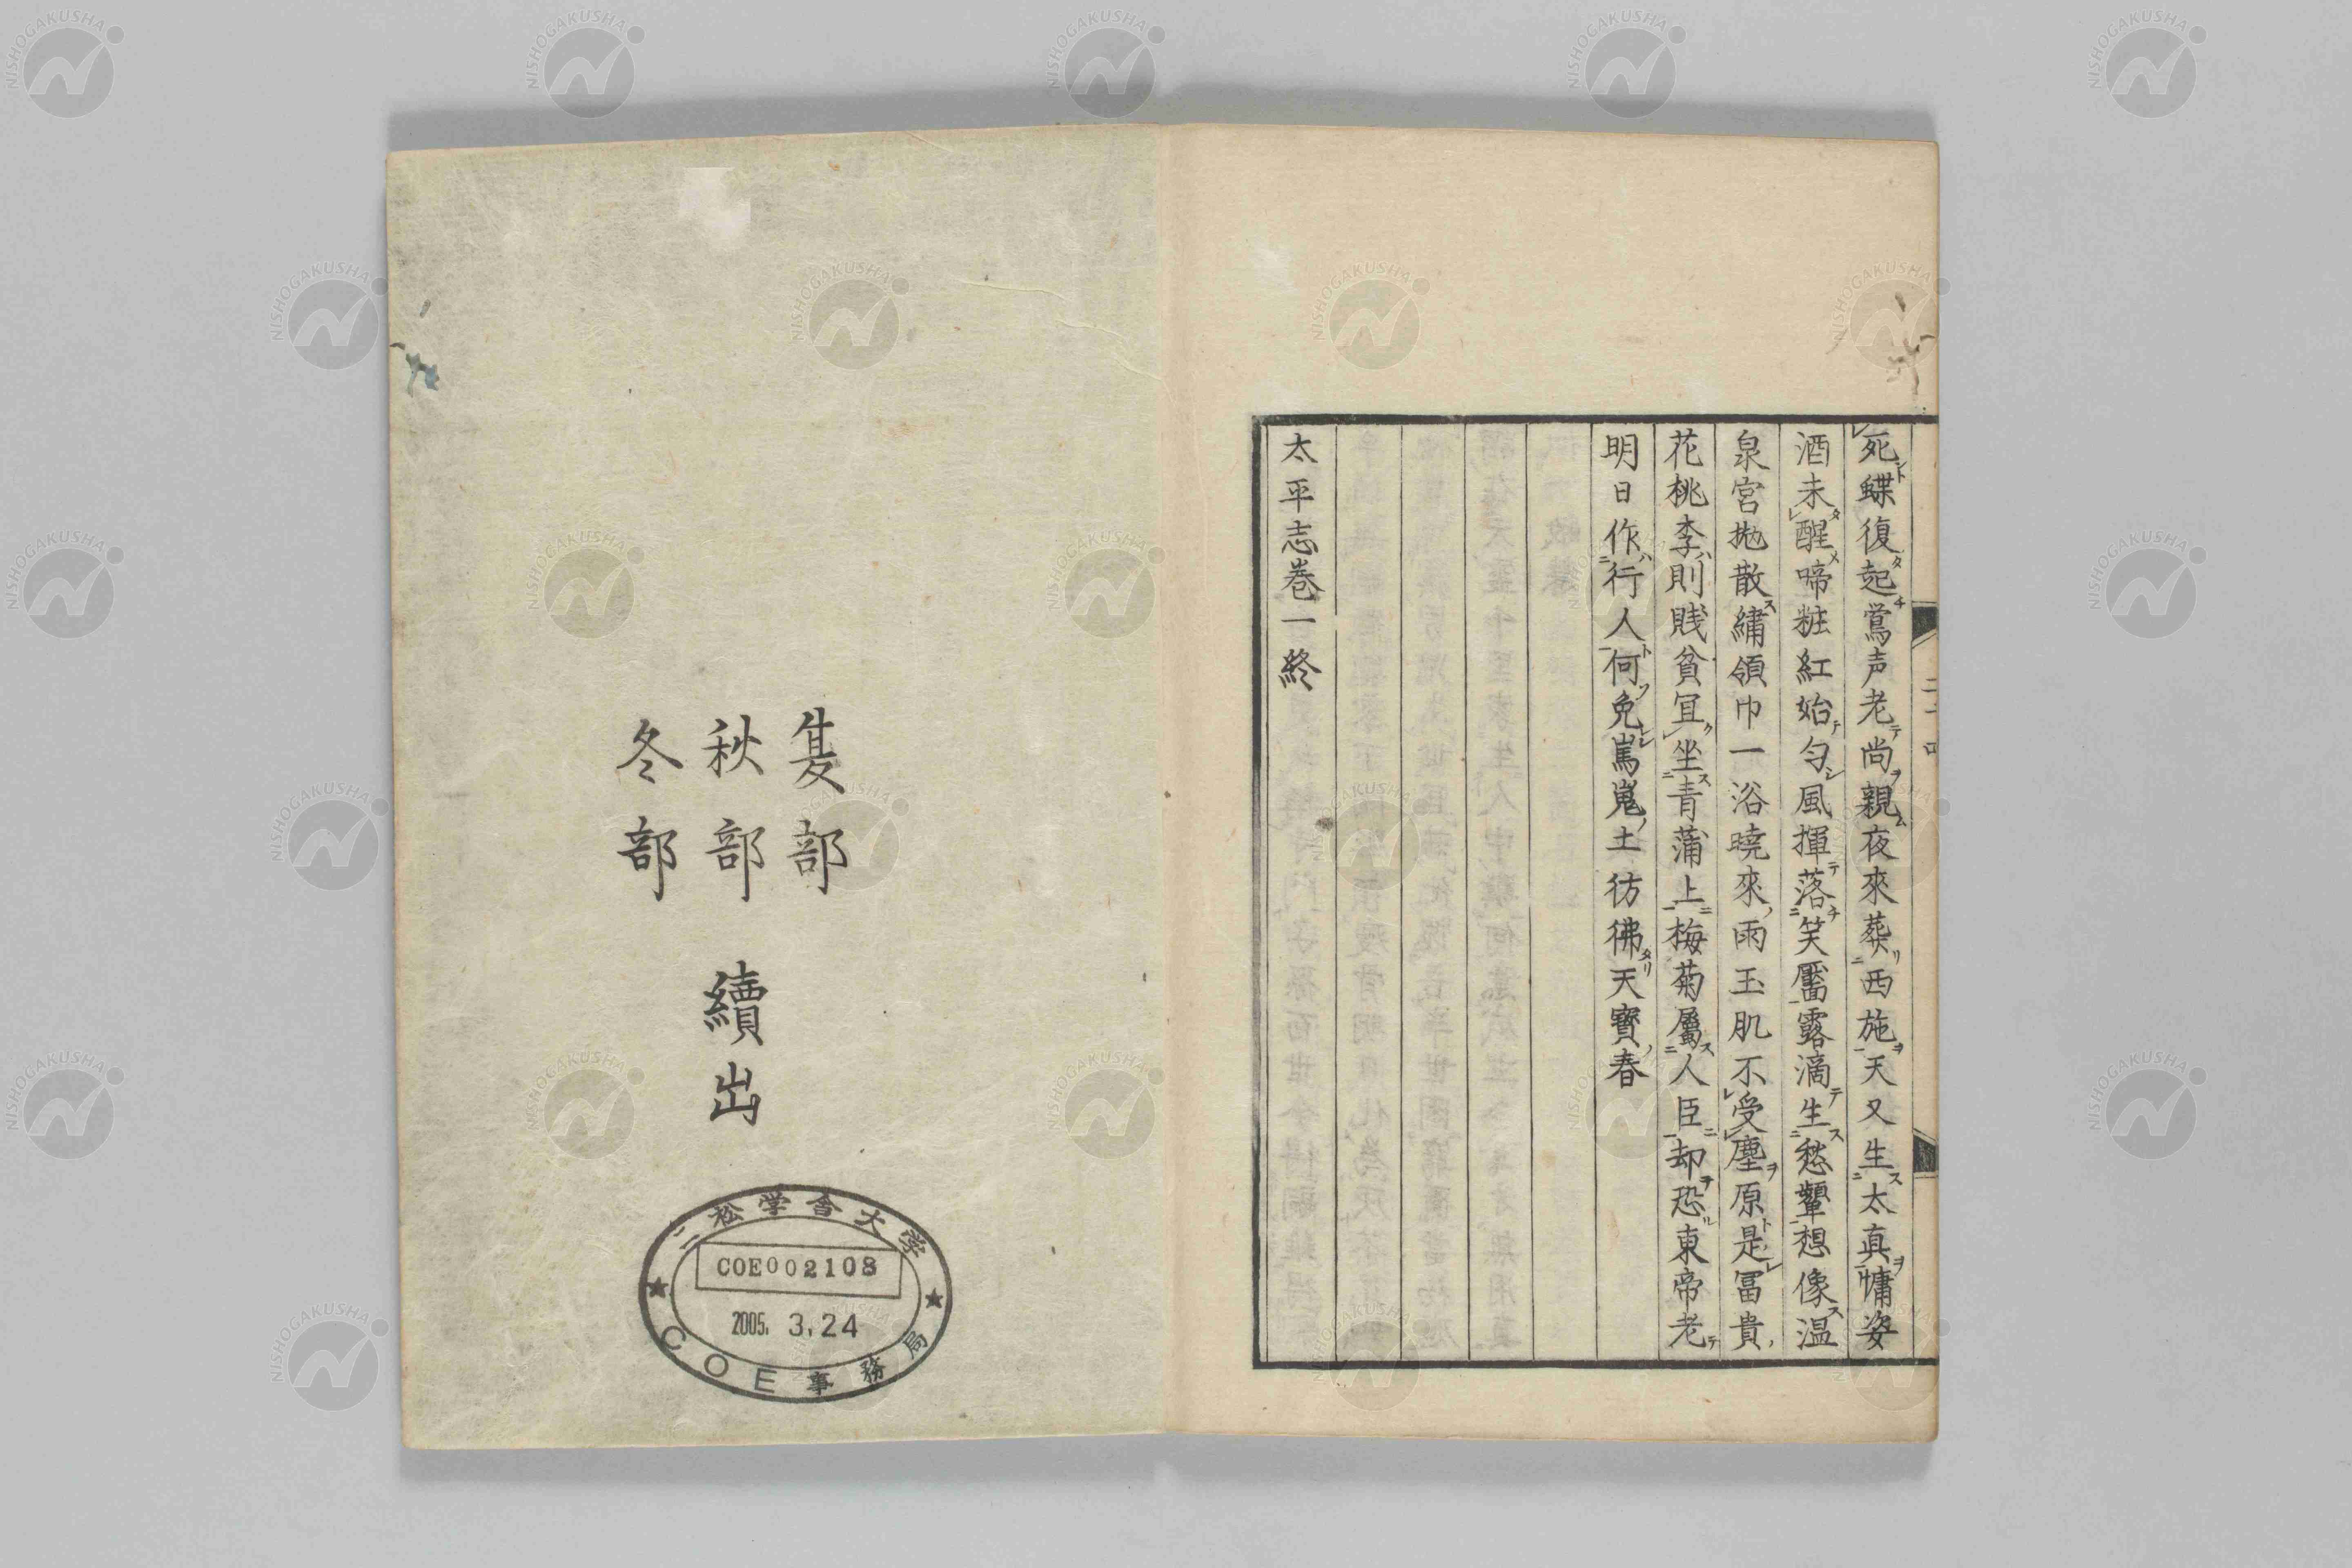 死蝶復起鶯声老尚親夜來葬西施天又生太真慵姿
酒未醒啼粧紅始匀風揮落笑靨露滴生愁顰想像温
泉宮拋散繡領巾一浴曉來雨玉肌不受塵原是冨貴
花桃李則賎貧冝坐青蒲上梅菊屬人臣却恐東帝老
明日作行人何免嵩嵬土彷彿天寶春
太平志巻一終
夏部
秋部
冬部
續出
二松学舍大学
COE002108
2005. 3.24
COE事務局
NISHOGAKUSHA